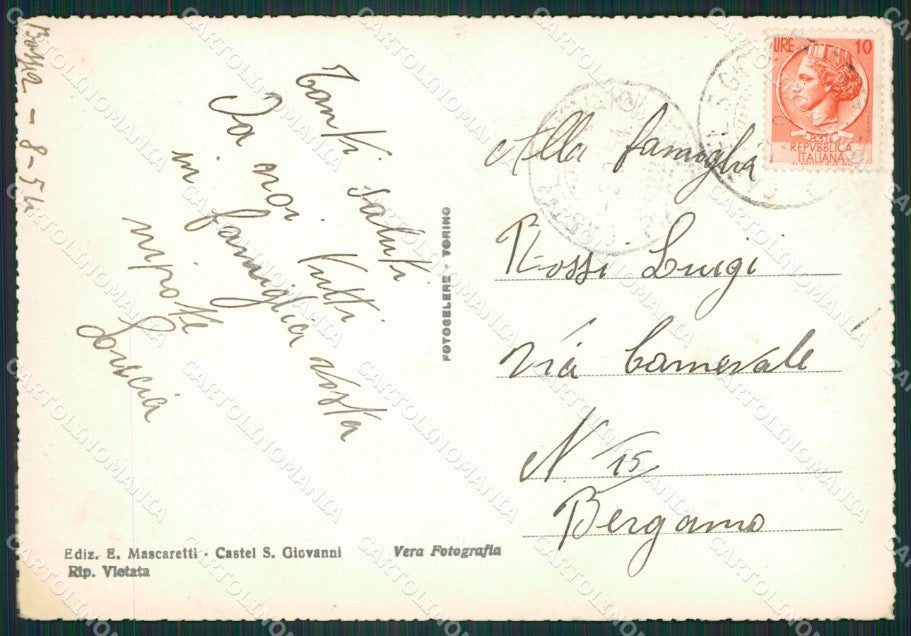 8-54
Tanti saluti
Da noi tutti
in famiglia vosta
nipote
Luccia
FOTOCELERE - TORINO
LIRE 10
POSTE
REPVBBLICA
ITALIANA
Alla famiglia
Rossi Luigi
Via Carnevale
N 15
Bergamo
Ediz. E. Mascaretti - Castel S. Giovanni
Rip. Vietata
Vera Fotografia
CARTOLINOMANIA